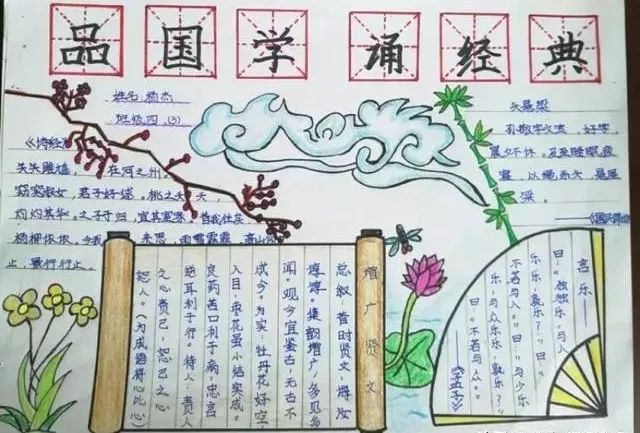 品国学 诵经典
姓名:杨杰
班级:四、(3)
《诗经》
在河之州。
窈窕淑女,君子好逑。桃之夭夭,
灼灼其华。之子于归,宜其室家。昔我往矣
杨柳依依。今我来思,雨雪霏霏。高山仰
止,景行行止。
头悬梁
孙敬字文宝,好学,
晨夕不休。及至眠睡疲
寝,以绳系头,悬屋
梁。
增广贤文
总叙 昔时贤文,诲汝
谆谆。集韵增广,多见多
闻。观今宜鉴古,无古不
成今。为实:牡丹花好空
入目,枣花虽小结实成。
良药苦口利于病,忠言
逆耳利于行。待人:责人
之心责己,恕己之心
恕人。(为成语将心比心)
言乐
曰:“独乐乐,与人
乐乐,孰乐?”曰:“
不若与人。”曰:“与少乐
乐,与众乐乐,孰乐?”
曰:“不若与众。”
——《孟子》